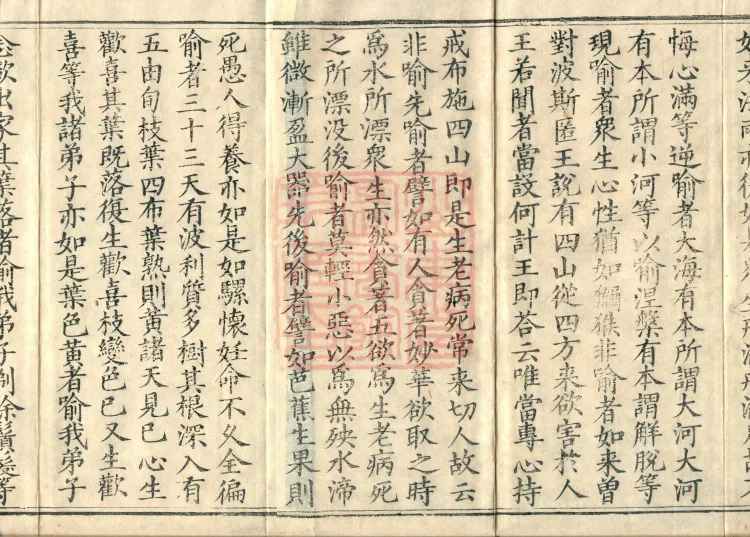 悔心滿等逆喻者大海有本所謂大河大河
有本所謂小河等以喻涅槃有本謂解脫等
現喻者衆生心性猶如獼猴非喻者如来曾
對波斯匿王說有四山從四方来欲害於人
王若聞者當設何計王即荅云唯當專心持
戒布施四山即是生老病死常来切人故云
非喻先喻者譬如有人貪著妙華欲取之時
爲水所漂衆生亦然貪著五欲爲生老病死
之所漂没後喻者莫輕小惡以爲無殃水渧
雖微漸盈大器先後喻者譬如芭蕉生果則
死愚人得養亦如是如騾懷妊命不久全徧
喻者三十三天有波利質多樹其根深入有
五由旬枝葉四布葉熟則黃諸天見已心生
歡喜其葉既落復生歡喜枝變色已又生歡
喜等我諸弟子亦如是葉色黃者喻我弟子
念欲出家其葉落者喻我弟子剃除鬚髮等